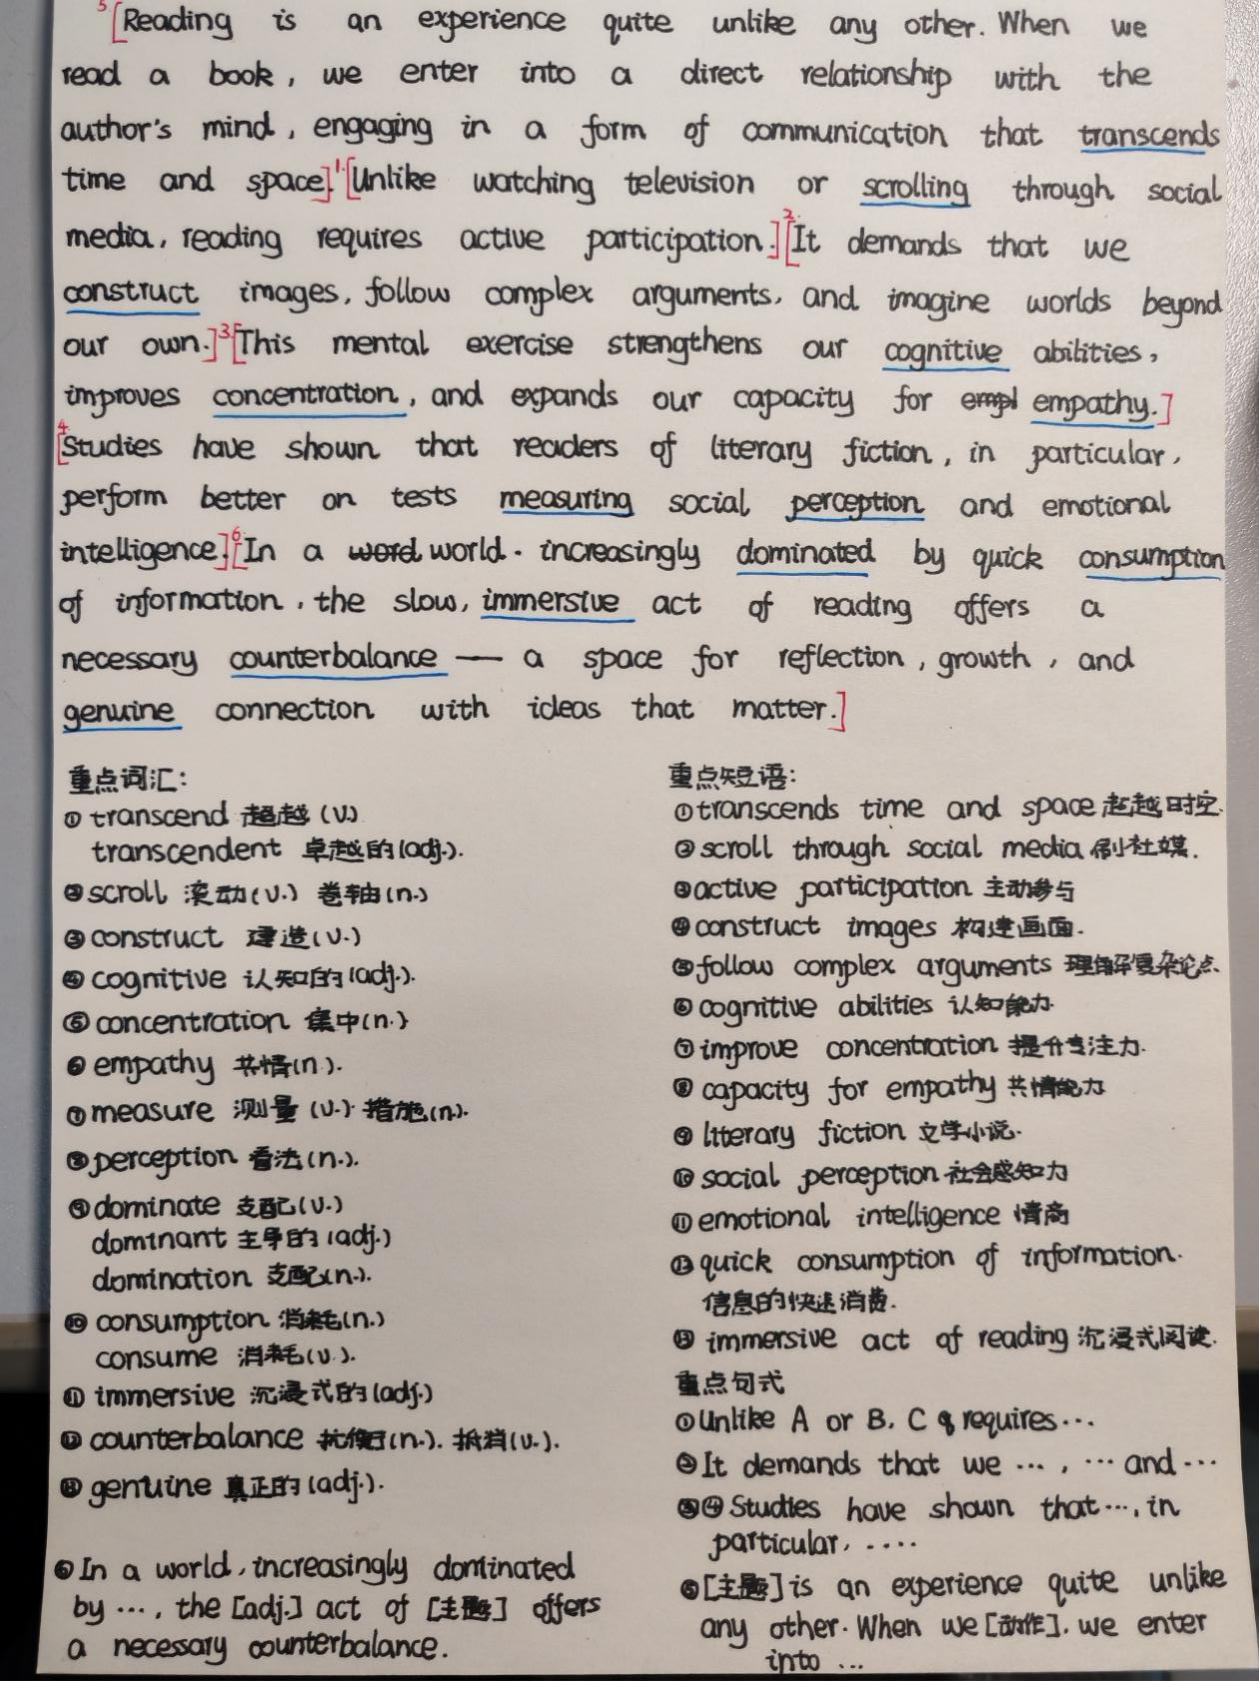 5 [Reading is an experience quite unlike any other. When we
read a book, we enter into a direct relationship with the
author's mind, engaging in a form of communication that transcends
time and space.] 1. [Unlike watching television or scrolling through social
media, reading requires active participation.] 2. [It demands that we
construct images, follow complex arguments, and imagine worlds beyond
our own.] 3. [This mental exercise strengthens our cognitive abilities,
improves concentration, and expands our capacity for empl empathy.]
4. [Studies have shown that readers of literary fiction, in particular,
perform better on tests measuring social perception and emotional
intelligence.] 6. [In a word world. increasingly dominated by quick consumption
of information, the slow, immersive act of reading offers a
necessary counterbalance — a space for reflection, growth, and
genuine connection with ideas that matter.]
重点词汇:
① transcend 超越 (v.)
transcendent 卓越的 (adj.).
② scroll 滚动 (v.) 卷轴 (n.)
③ construct 建造 (v.)
④ cognitive 认知的 (adj.).
⑤ concentration 集中 (n.)
⑥ empathy 共情 (n.).
⑦ measure 测量 (v.). 措施 (n.).
⑧ perception 看法 (n.).
⑨ dominate 支配 (v.)
dominant 主导的 (adj.)
domination 支配 (n.).
⑩ consumption 消耗 (n.)
consume 消耗 (v.).
⑪ immersive 沉浸式的 (adj.)
⑫ counterbalance 抗衡 (n.). 抵消 (v.).
⑬ genuine 真正的 (adj.).
重点短语:
① transcends time and space 超越时空.
② scroll through social media 刷社媒.
③ active participation 主动参与
④ construct images 构建画面.
⑤ follow complex arguments 理解复杂论点.
⑥ cognitive abilities 认知能力
⑦ improve concentration 提升专注力.
⑧ capacity for empathy 共情能力
⑨ literary fiction 文学小说.
⑩ social perception 社会感知力
⑪ emotional intelligence 情商
⑫ quick consumption of information.
信息的快速消费.
⑬ immersive act of reading 沉浸式阅读.
重点句式
① Unlike A or B, C requires...
② It demands that we ..., ... and ...
③④ Studies have shown that ..., in
particular, ....
⑤ [主题] is an experience quite unlike
any other. When we [动作], we enter
into ...
⑥ In a world, increasingly dominated
by ..., the [adj.] act of [主题] offers
a necessary counterbalance.